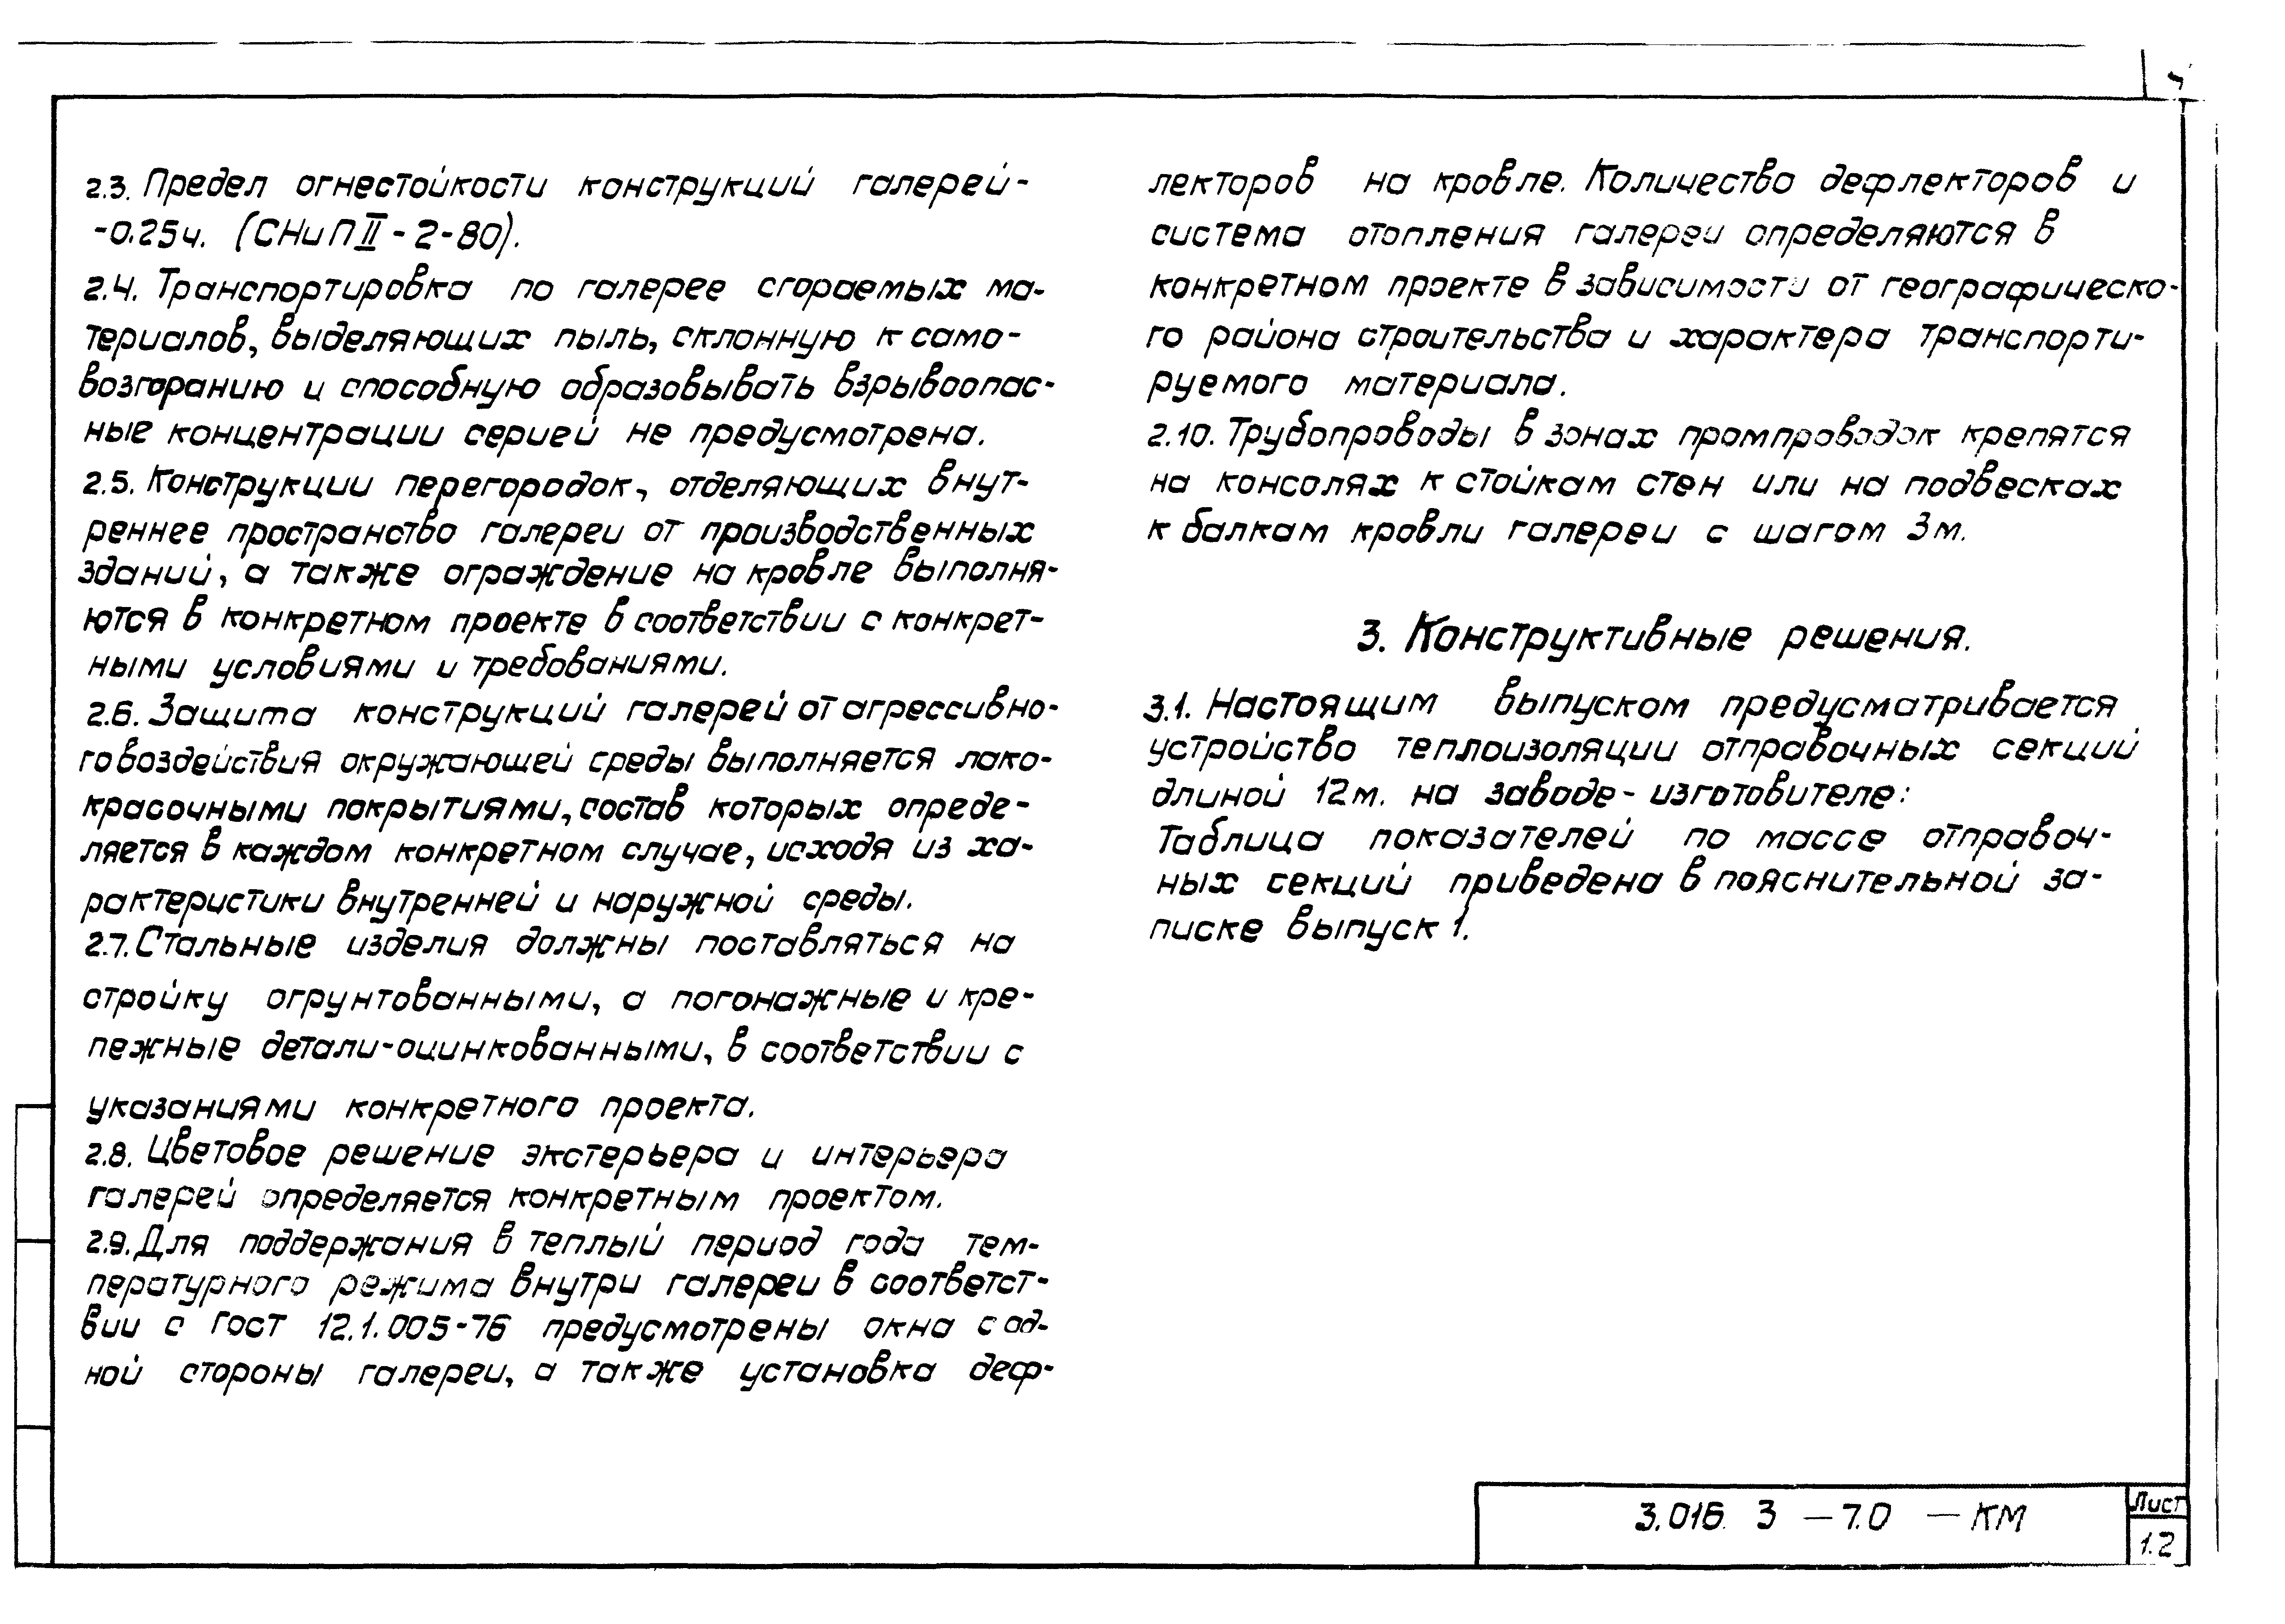 2.3. Предел огнестойкости конструкций галерей-
-0.25ч. (СНиП II - 2-80).
2.4. Транспортировка по галерее сгораемых ма-
териалов, выделяющих пыль, склонную к само-
возгоранию и способную образовывать взрывоопас-
ные концентрации серией не предусмотрена.
2.5. Конструкции перегородок, отделяющих внут-
реннее пространство галереи от производственных
зданий, а также ограждение на кровле выполня-
ются в конкретном проекте в соответствии с конкрет-
ными условиями и требованиями.
2.6. Защита конструкций галерей от агрессивно-
го воздействия окружающей среды выполняется лако-
красочными покрытиями, состав которых опреде-
ляется в каждом конкретном случае, исходя из ха-
рактеристики внутренней и наружной среды.
2.7. Стальные изделия должны поставляться на
стройку огрунтованными, а погонажные и кре-
пежные детали-оцинкованными, в соответствии с
указаниями конкретного проекта.
2.8. Цветовое решение экстерьера и интерьера
галерей определяется конкретным проектом.
2.9. Для поддержания в теплый период года тем-
пературного режима внутри галереи в соответст-
вии с ГОСТ 12.1.005-76 предусмотрены окна с од-
ной стороны галереи, а также установка деф-
лекторов на кровле. Количество дефлекторов и
система отопления галереи определяются в
конкретном проекте в зависимости от географическо-
го района строительства и характера транспорти-
руемого материала.
2.10. Трубопроводы в зонах промпроводок крепятся
на консолях к стойкам стен или на подвесках
к балкам кровли галереи с шагом 3м.
3. Конструктивные решения.
3.1. Настоящим выпуском предусматривается
устройство теплоизоляции отправочных секций
длиной 12м. на заводе-изготовителе:
Таблица показателей по массе отправоч-
ных секций приведена в пояснительной за-
писке выпуск 1.
3.016. 3 - 7.0 - КМ
Лист
1.2